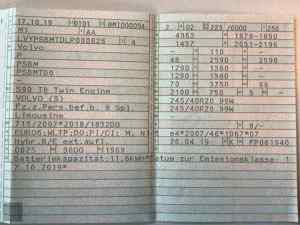 17.10.19 0101 BMI000094
M1 AA
4
Volvo
P
PSBM
PSBMTD0
S90 T8 Twin Engine
VOLVO (S)
Fz.z.Pers.bef.b. 8 Spl.
Limousine
715/2007*2018/1832DG
EURO6;WLTP;DG;PI/CI; M, N1
Hybr.B/E ext.aufl.
0875 3600 1969
Batteriekapazität:11,6kWh*Datum zur Emissionsklasse: 1
7.10.2019*
2 02 223 /6000 250
4963 1879-1890
1437 2051-2196
110
48 2590 2590
1290 1300
1290 1300
70 3750 66
2100 750 5
245/40R20 99W
245/40R20 99W
8/-
e4*2007/46*1067*07
26.04.19 K